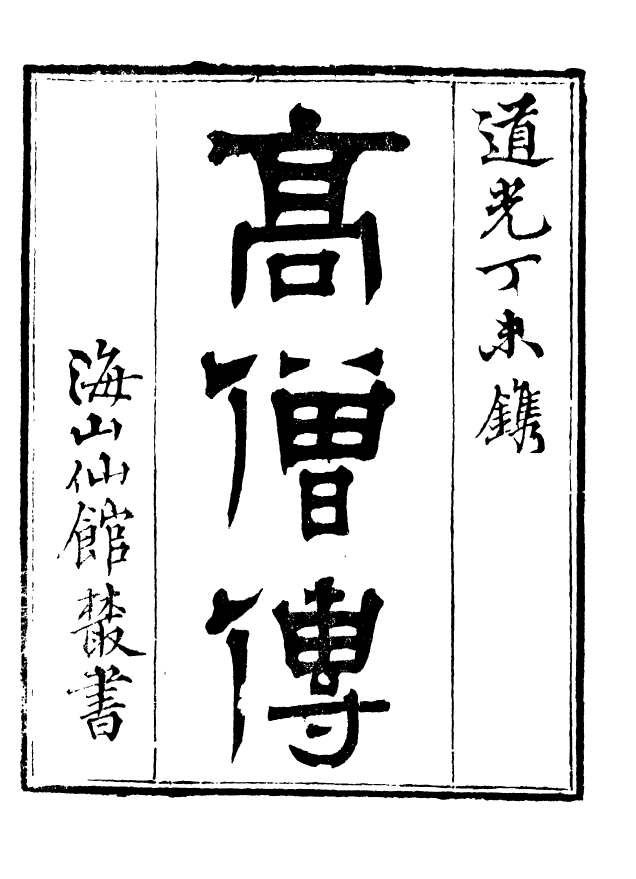 道光丁未鐫
高僧傳
海山仙館叢書